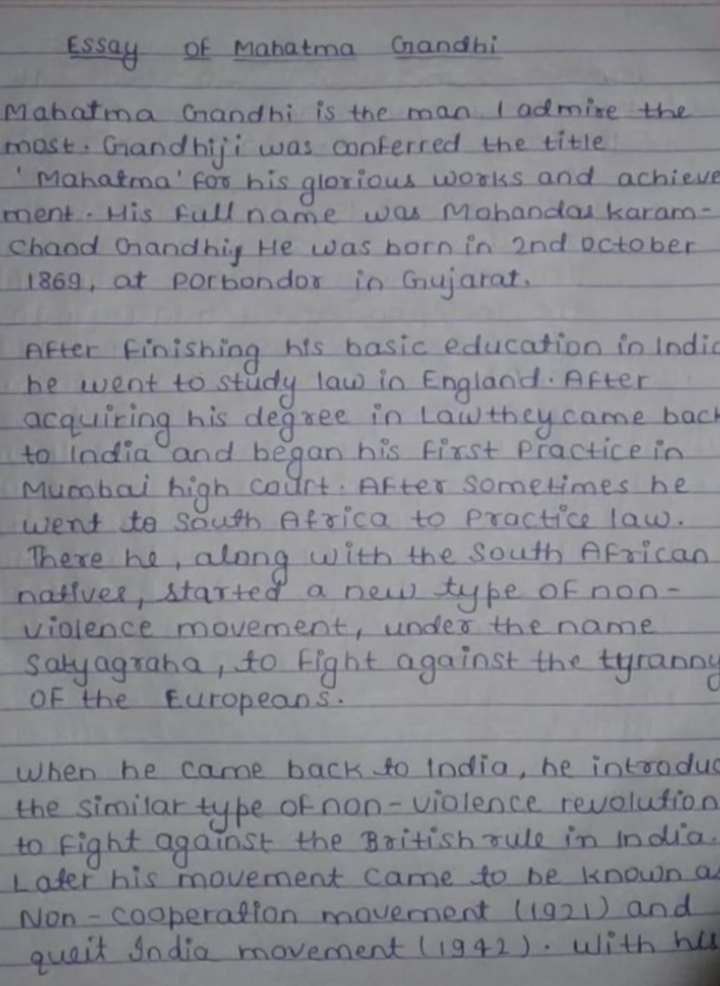 Essay of Mahatma Gandhi
Mahatma Gandhi is the man I admire the
most. Gandhiji was conferred the title
'Mahatma' for his glorious works and achieve
ment. His full name was Mohandas karam-
Chand Gandhi, He was born in 2nd October
1869, at Porbondor in Gujarat.
After finishing his basic education in India
he went to study law in England. After
acquiring his degree in Law they came back
to India and began his first Practice in
Mumbai high court. After sometimes he
went to South Africa to Practice law.
There he, along with the South African
natives, started a new type of non-
violence movement, under the name
Satyagraha, to fight against the tyranny
of the Europeans.
When he came back to India, he introduc
the similar type of non-violence revolution
to fight against the British rule in India.
Later his movement came to be known as
Non-cooperation movement (1921) and
queit India movement (1942). With his